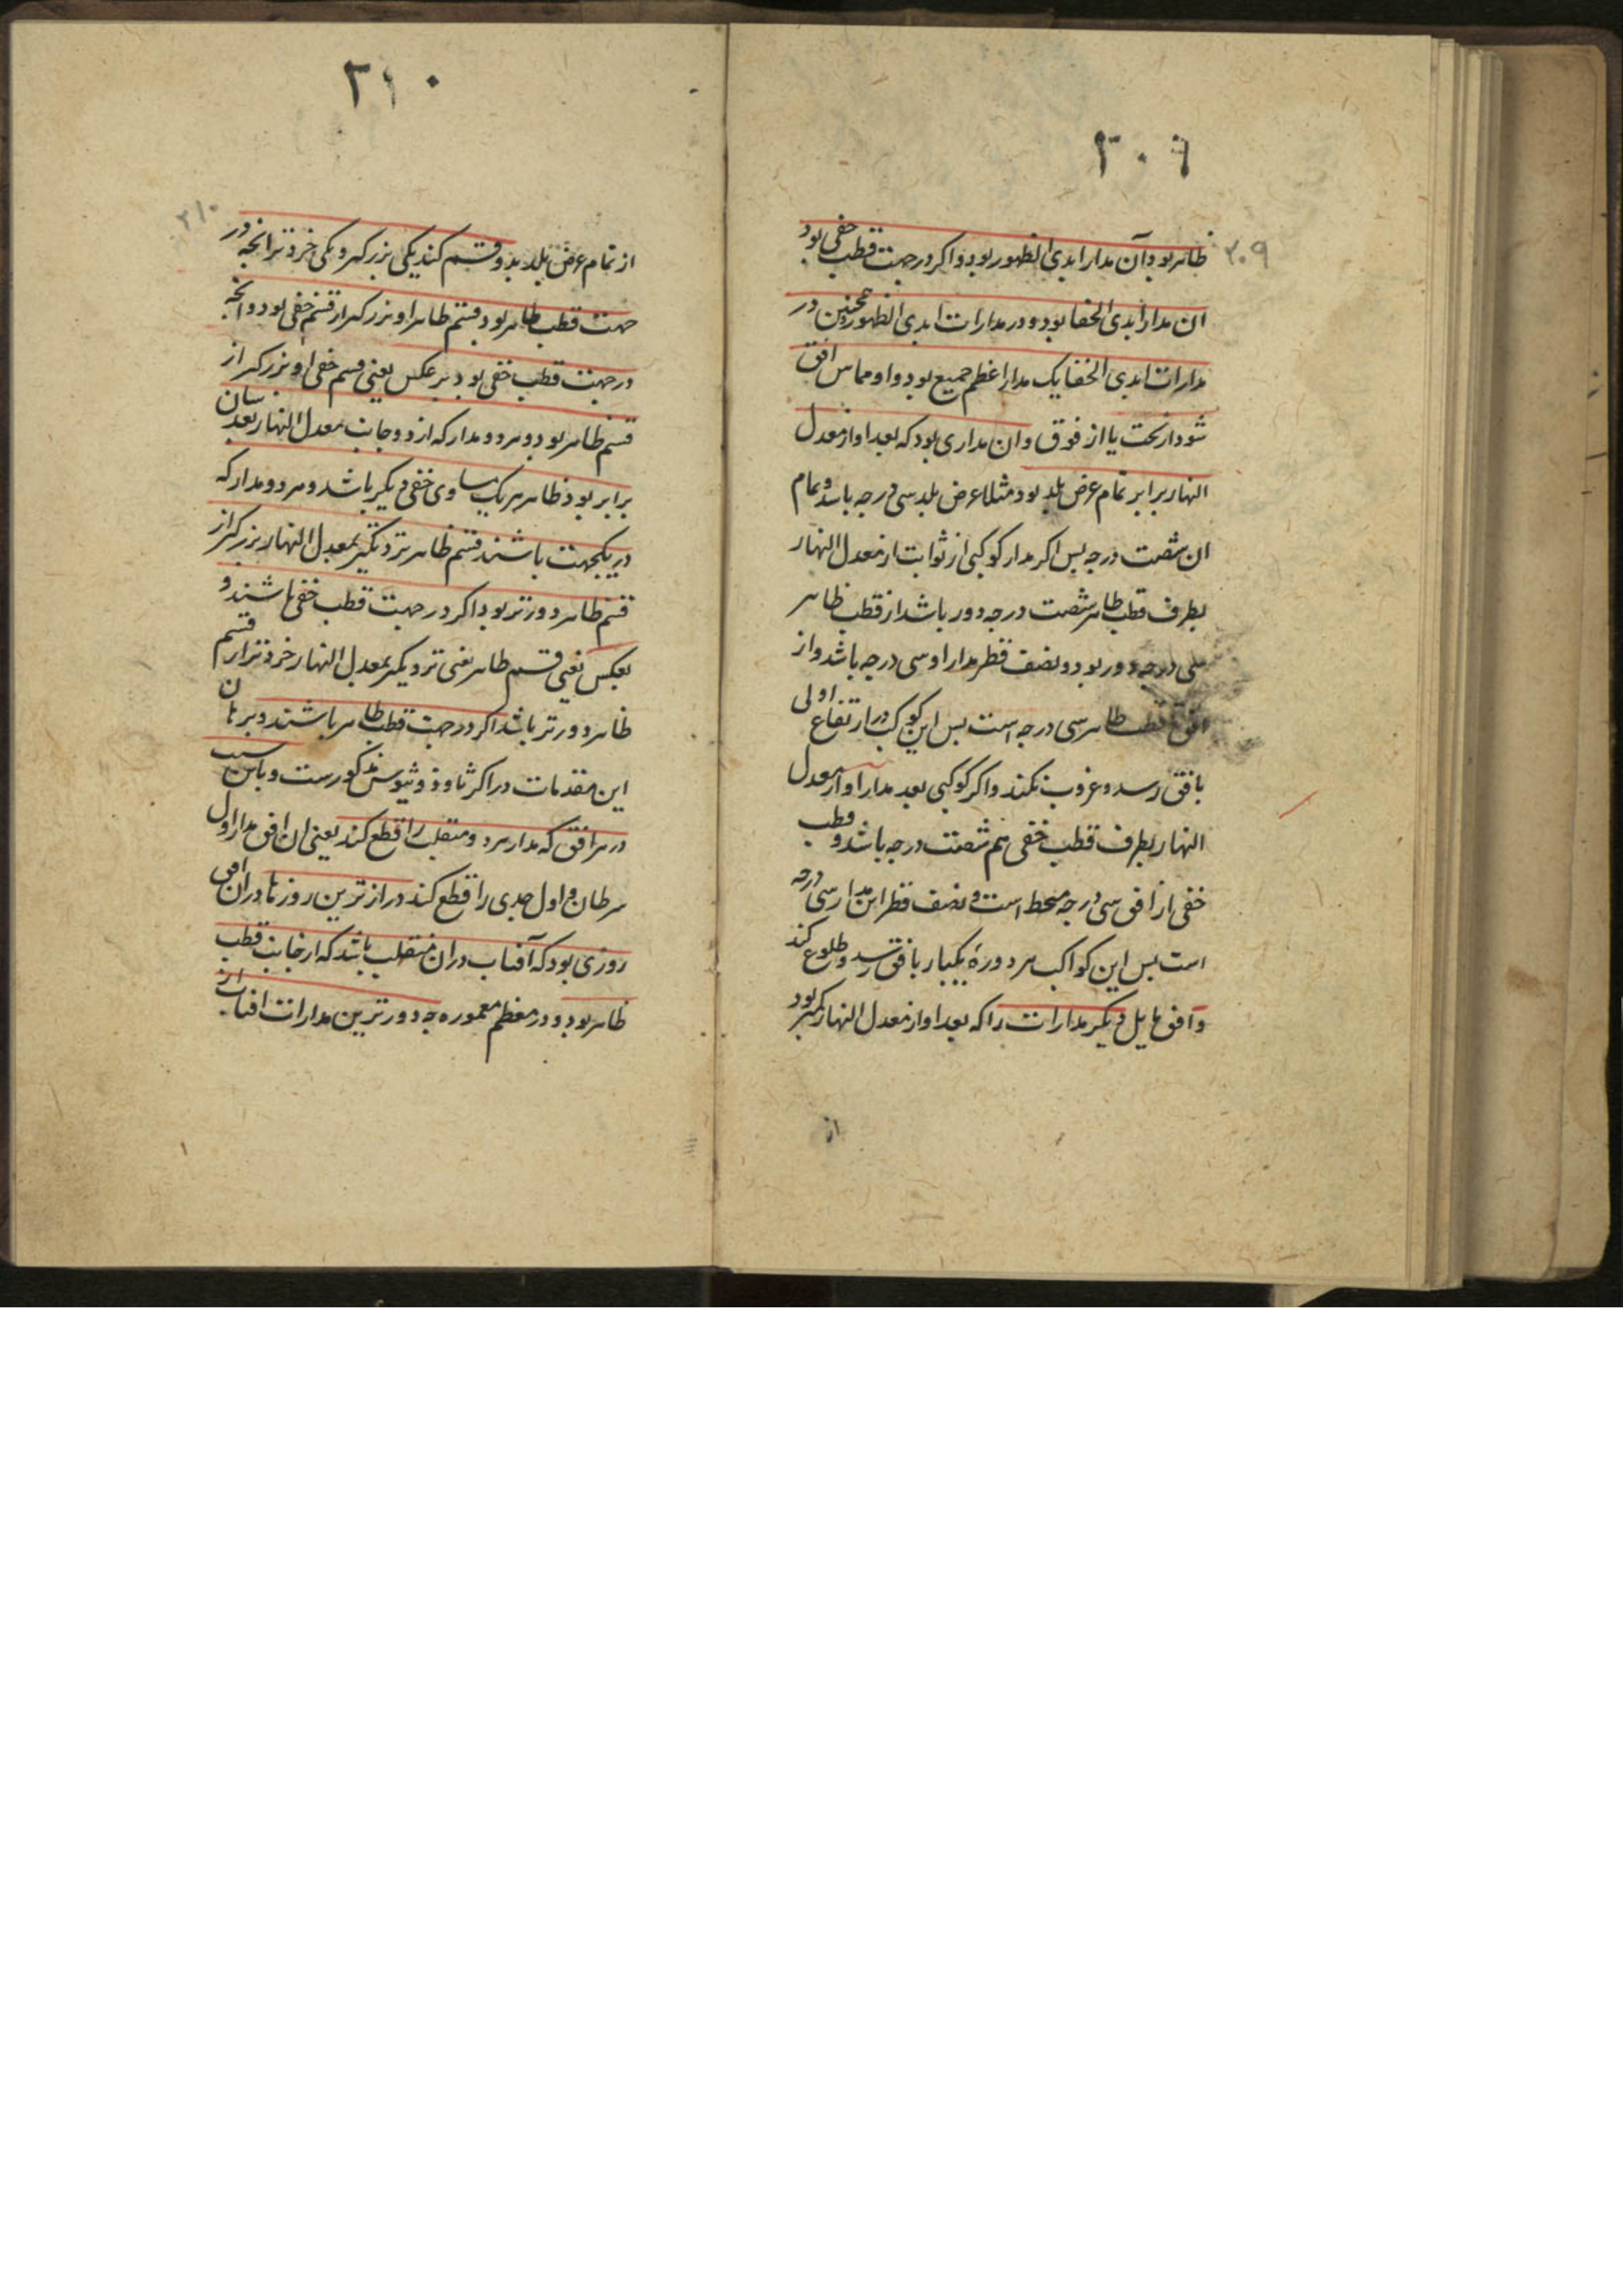 ۳۰۹
۳۰۹
ظاهر بود آن مدار ابدی الظهور بود و اکر در جهت قطب خفی بود
ان مدار ابدی الخفا بود و در مدارات ابدی الظهور همچنین در
مدارات ابدی الخفا یک مدار اعظم جمیع بود و او مماس افق
شود از تحت یا از فوق و ان مداری بود که بعد او از معدل
النهار برابر تمام عرض بلد بود مثلا عرض بلد سی درجه باشد و تمام
ان شصت درجه بس اکر مدار کوکبی از ثوابت از معدل النهار
بطرف قطب ظاهر شصت درجه دور باشد از قطب ظاهر
سی درجه دور بود و نصف قطر مدار او سی درجه باشد و از
افق قطب ظاهر سی درجه است بس این کوکب در ارتفاع اولی
بافق رسد و غروب نکند و اکر کوکبی بعد مدار او از معدل
النهار بطرف قطب خفی هم شصت درجه باشد و قطب
خفی از افق سی درجه منحط است و نصف قطر این مدار سی درجه
است بس این کواکب هر دوره یکبار بافق رسد و طلوع نکند
و افق مایل دیکر مدارات را که بعد او از معدل النهار کمتر بود
از
۳۱۰
۳۱۰
از تمام عرض بلد بدو قسم کند یکی بزرکتر و یکی خردتر انچه در
جهت قطب ظاهر بود قسم ظاهر او بزرکتر از قسم خفی بود و انچه
در جهت قطب خفی بود برعکس یعنی قسم خفی او بزرکتر از
قسم ظاهر بود و هر دو مدار که از دو جانب معدل النهار بعدسان
برابر بود ظاهر هر یک مساوی خفی دیکر باشد و هر دو مدار که
در یکجهت باشند قسم ظاهر نزدیکتر بمعدل النهار بزرکتر از
قسم ظاهر دورتر بود اکر در جهت قطب خفی باشند و
بعکس یعنی قسم ظاهر یعنی نزدیکتر بمعدل النهار خردتر از قسم
ظاهر دورتر باشد اکر در جهت قطب ظاهر باشند و برهان
این مقدمات در اکر ثاوذوثیوس مذکورست و باین سبب
در هر افق که مدار هر دو منقلب را قطع کند یعنی ان افق مدار اول
سرطان و اول جدی را قطع کند درازترین روزها در ان افق
روزی بود که آفتاب در ان منقلب باشد که از جانب قطب
ظاهر بود و در معظم معموره چه دورترین مدارات افتاب از